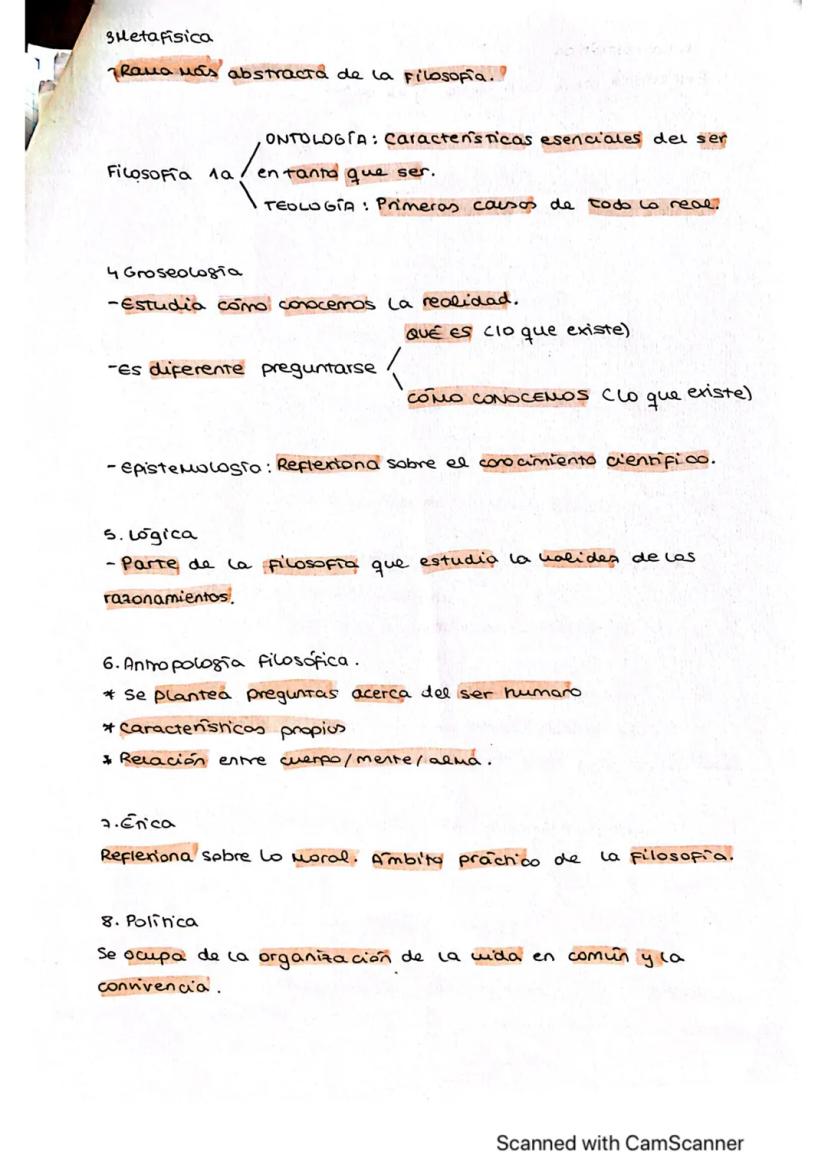 3 Metafísica
- Rama más abstracta de la Filosofía.
ONTOLOGÍA: Características esenciales del ser
Filosofía 1a en tanto que ser.
TEOLOGÍA: Primeras causas de todo lo real.
4 Gnoseología
- Estudia cómo conocemos la realidad.
QUÉ ES (lo que existe)
- Es diferente preguntarse
CÓMO CONOCEMOS (lo que existe)
- Epistemología: Reflexiona sobre el conocimiento científico.
5. Lógica
- Parte de la Filosofía que estudia la validez de los
razonamientos.
6. Antropología Filosófica.
* Se plantea preguntas acerca del ser humano
* Características propias
* Relación entre cuerpo/mente/alma.
7. Ética
Reflexiona sobre lo moral. Ámbito práctico de la Filosofía.
8. Política
Se ocupa de la organización de la vida en común y la
convivencia.
Scanned with CamScanner